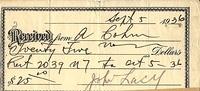 Sept 5 1936
Received from A Cohn
Seventy Five no/ Dollars
Rent 2039 N 7 to Oct 5-36
$25.00 John Lacy